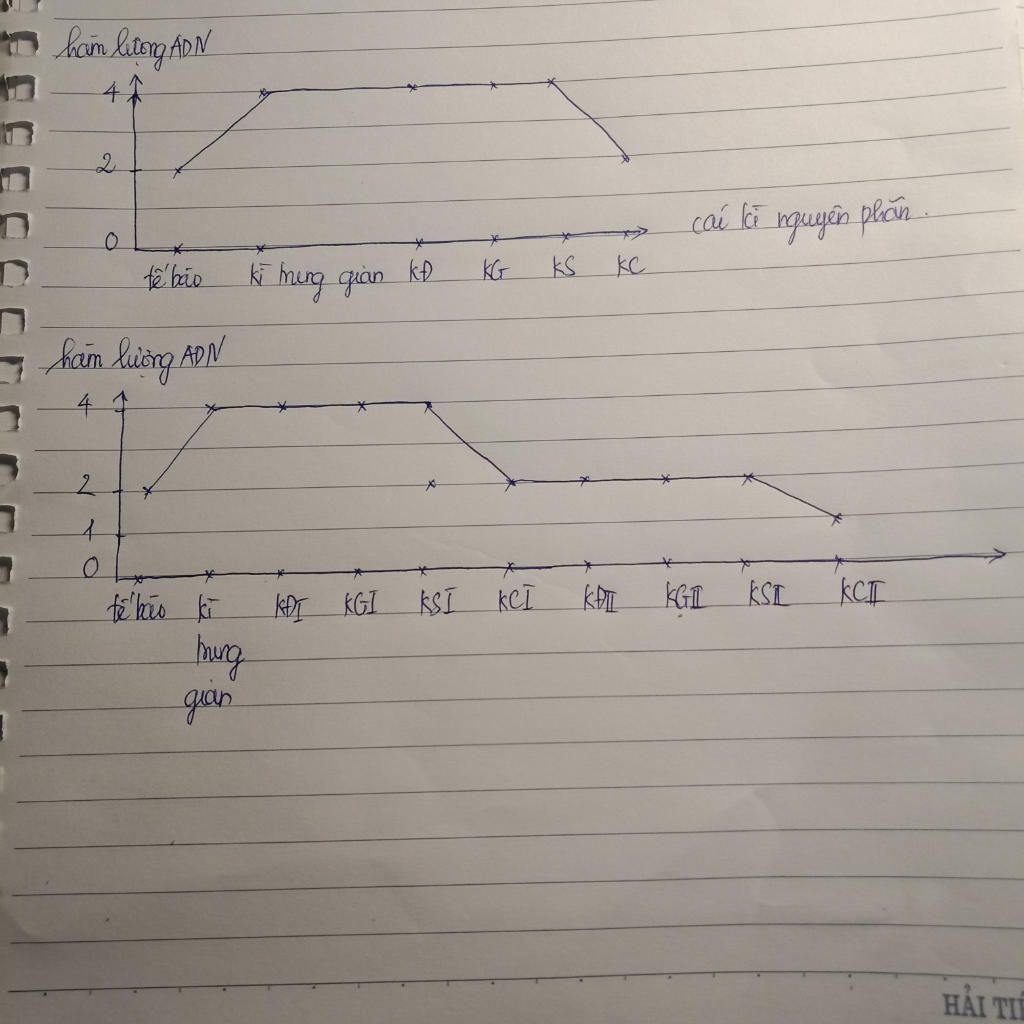 hàm lượng ADN
4
2
0
tế bào kì trung gian KĐ KG KS KC
các kì nguyên phân.
hàm lượng ADN
4
2
1
0
tế bào kì KĐI KGI KSI KCI KĐII KGII KSII KCII
trung
gian
HẢI TI